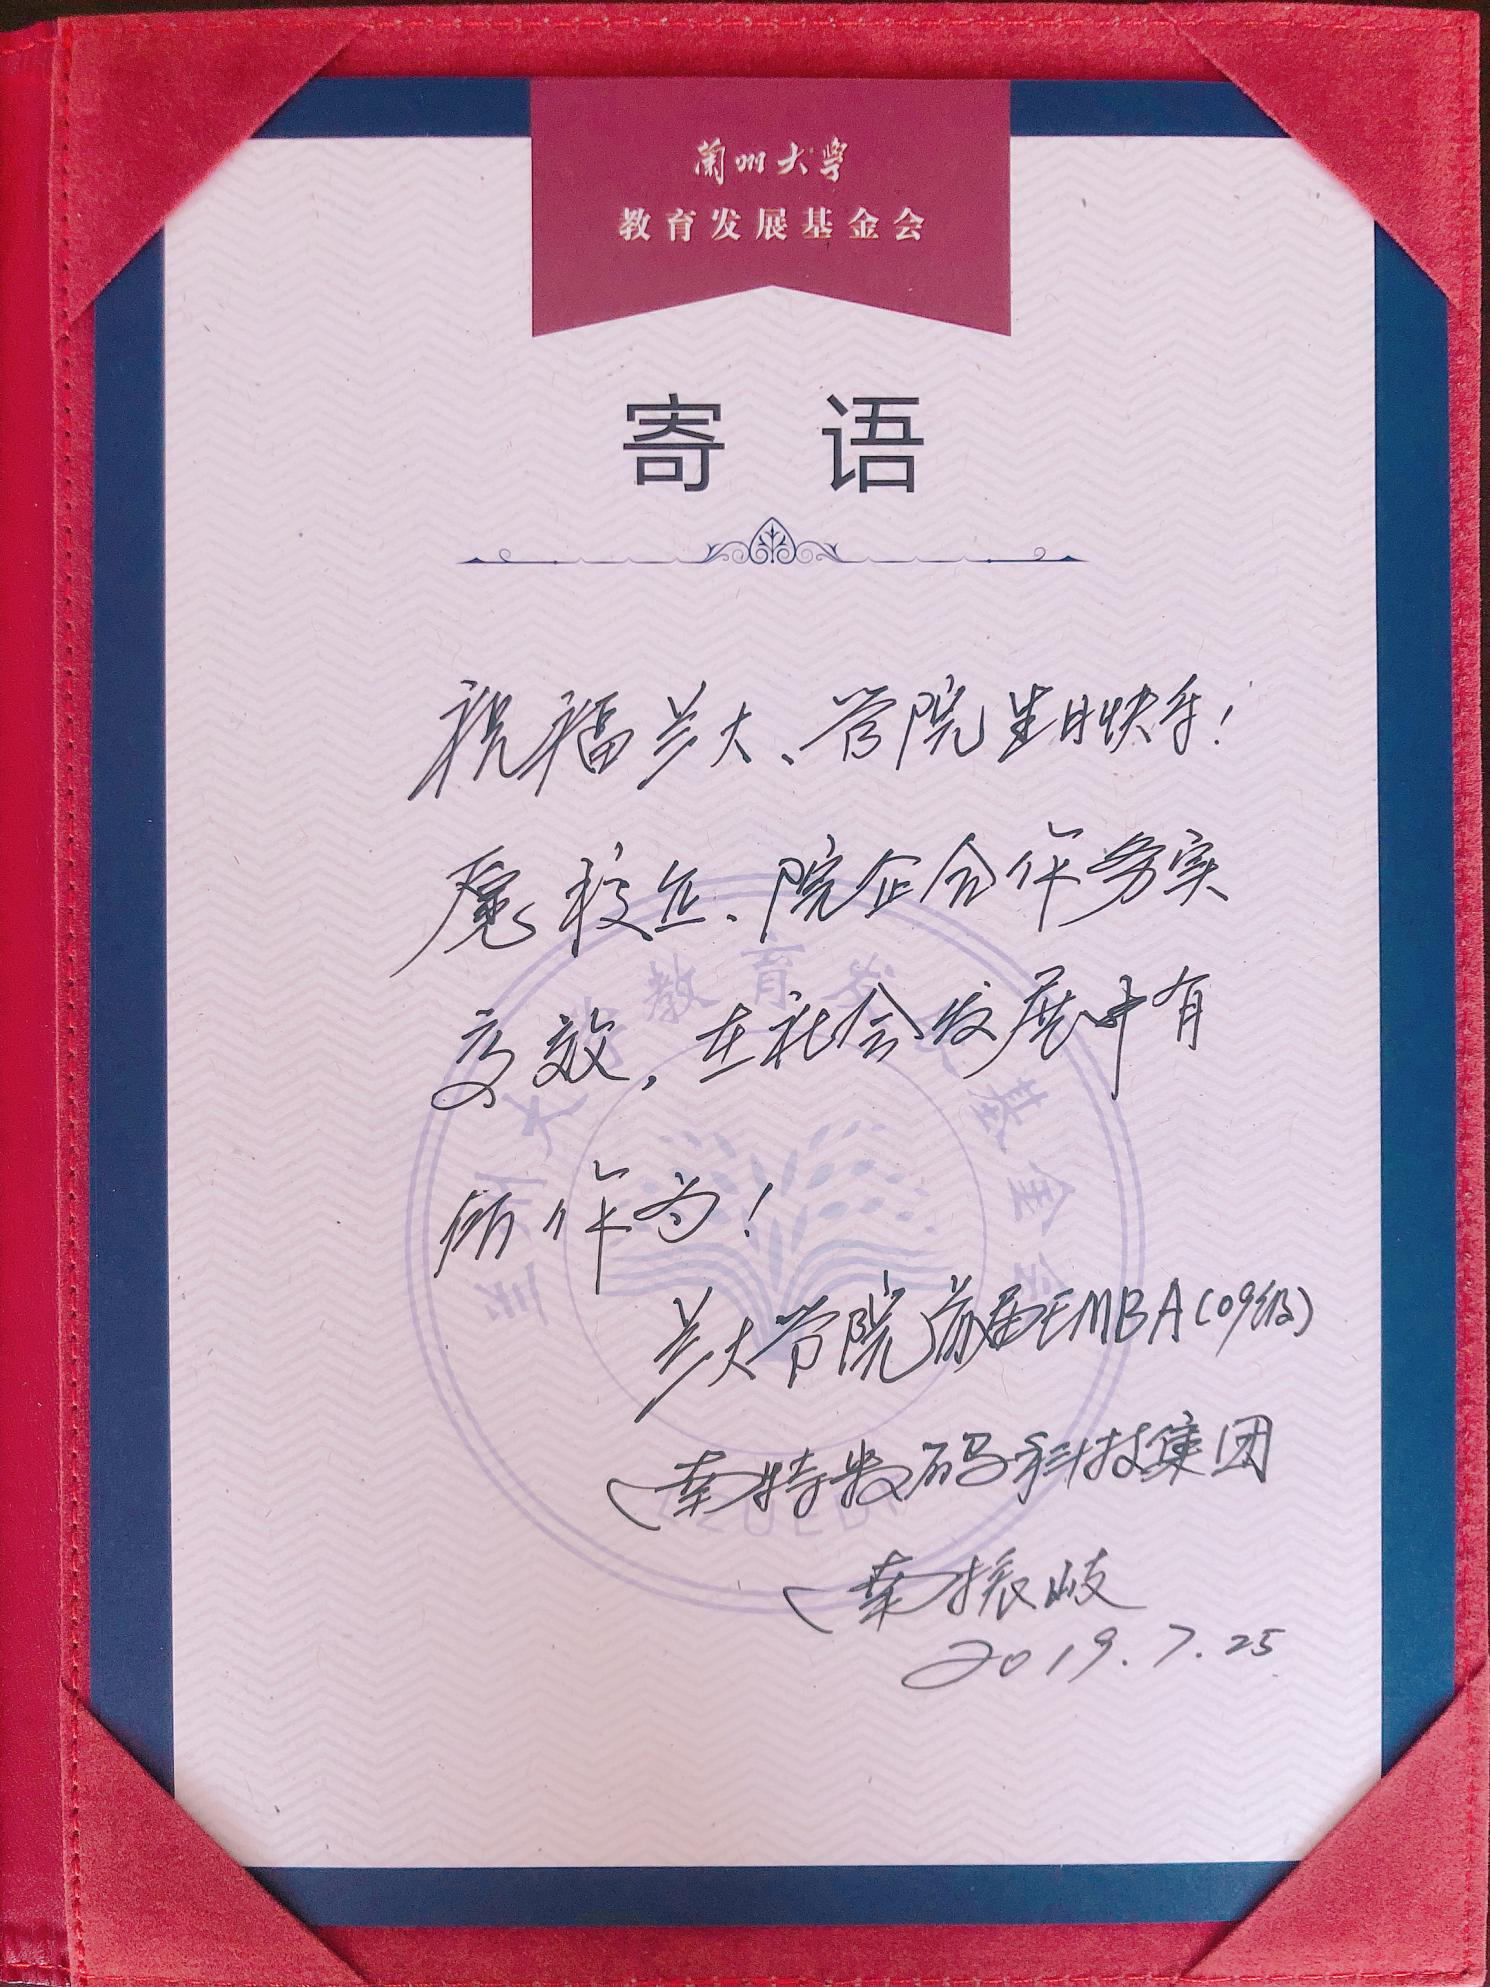 蘭州大学
教育发展基金会
寄语
祝福兰大、管院生日快乐!
愿校企、院企合作务实
高效,在社会发展中有
所作为!
兰大管院首届EMBA(09级)
南特数码科技集团
南振岐
2019.7.25
兰州大学教育发展基金会